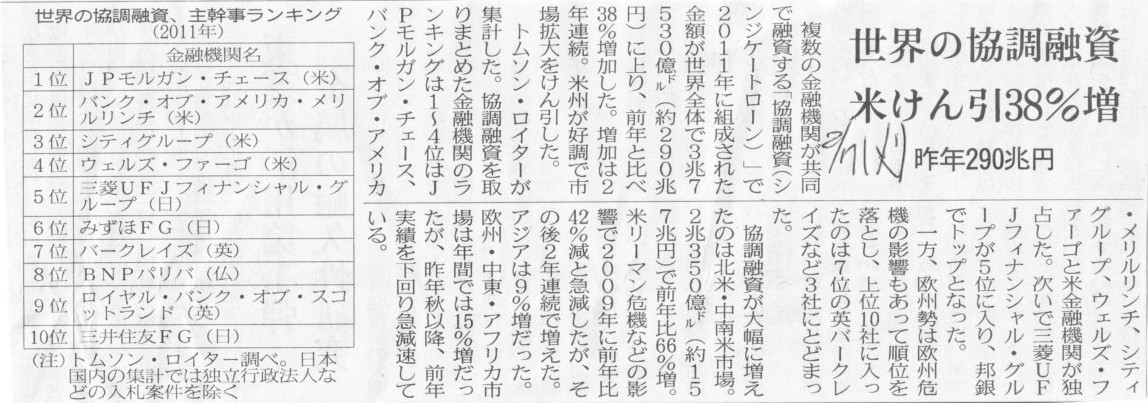 世界の協調融資
米けん引38％増
昨年290兆円
複数の金融機関が共同
で融資する「協調融資（シ
ンジケートローン）」で
２０１１年に組成された
金額が世界全体で３兆７
５３０億㌦（約２９０兆
円）に上り、前年と比べ
38％増加した。増加は２
年連続。米州が好調で市
場拡大をけん引した。
トムソン・ロイターが
集計した。協調融資を取
りまとめた金融機関のラ
ンキングは１〜４位はＪ
Ｐモルガン・チェース、
バンク・オブ・アメリカ
・メリルリンチ、シティ
グループ、ウェルズ・フ
ァーゴと米金融機関が独
占した。次いで三菱ＵＦ
Ｊフィナンシャル・グル
ープが５位に入り、邦銀
でトップとなった。
一方、欧州勢は欧州危
機の影響もあって順位を
落とし、上位10社に入っ
たのは７位の英バークレ
イズなど３社にとどまっ
た。
協調融資が大幅に増え
たのは北米・中南米市場。
２兆３５０億㌦（約１５
７兆円）で前年比66％増。
米リーマン危機などの影
響で２００９年に前年比
42％減と急減したが、そ
の後２年連続で増えた。
アジアは９％増だった。
欧州・中東・アフリカ市
場は年間では15％増だっ
たが、昨年秋以降、前年
実績を下回り急減速して
いる。
世界の協調融資、主幹事ランキング
（2011年）
金融機関名
1位 ＪＰモルガン・チェース（米）
2位 バンク・オブ・アメリカ・メリ
ルリンチ（米）
3位 シティグループ（米）
4位 ウェルズ・ファーゴ（米）
5位 三菱ＵＦＪフィナンシャル・グ
ループ（日）
6位 みずほＦＧ（日）
7位 バークレイズ（英）
8位 ＢＮＰパリバ（仏）
9位 ロイヤル・バンク・オブ・スコ
ットランド（英）
10位 三井住友ＦＧ（日）
（注）トムソン・ロイター調べ。日本
国内の集計では独立行政法人な
どの入札案件を除く